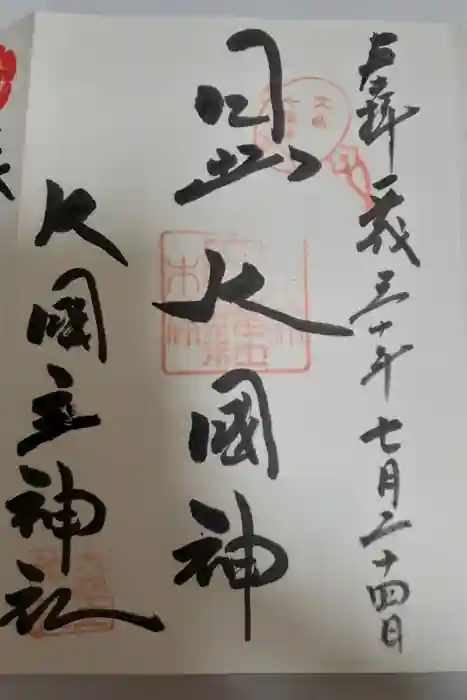 奉拝 平成三十年七月二十四日
日出大國神
大國主神社